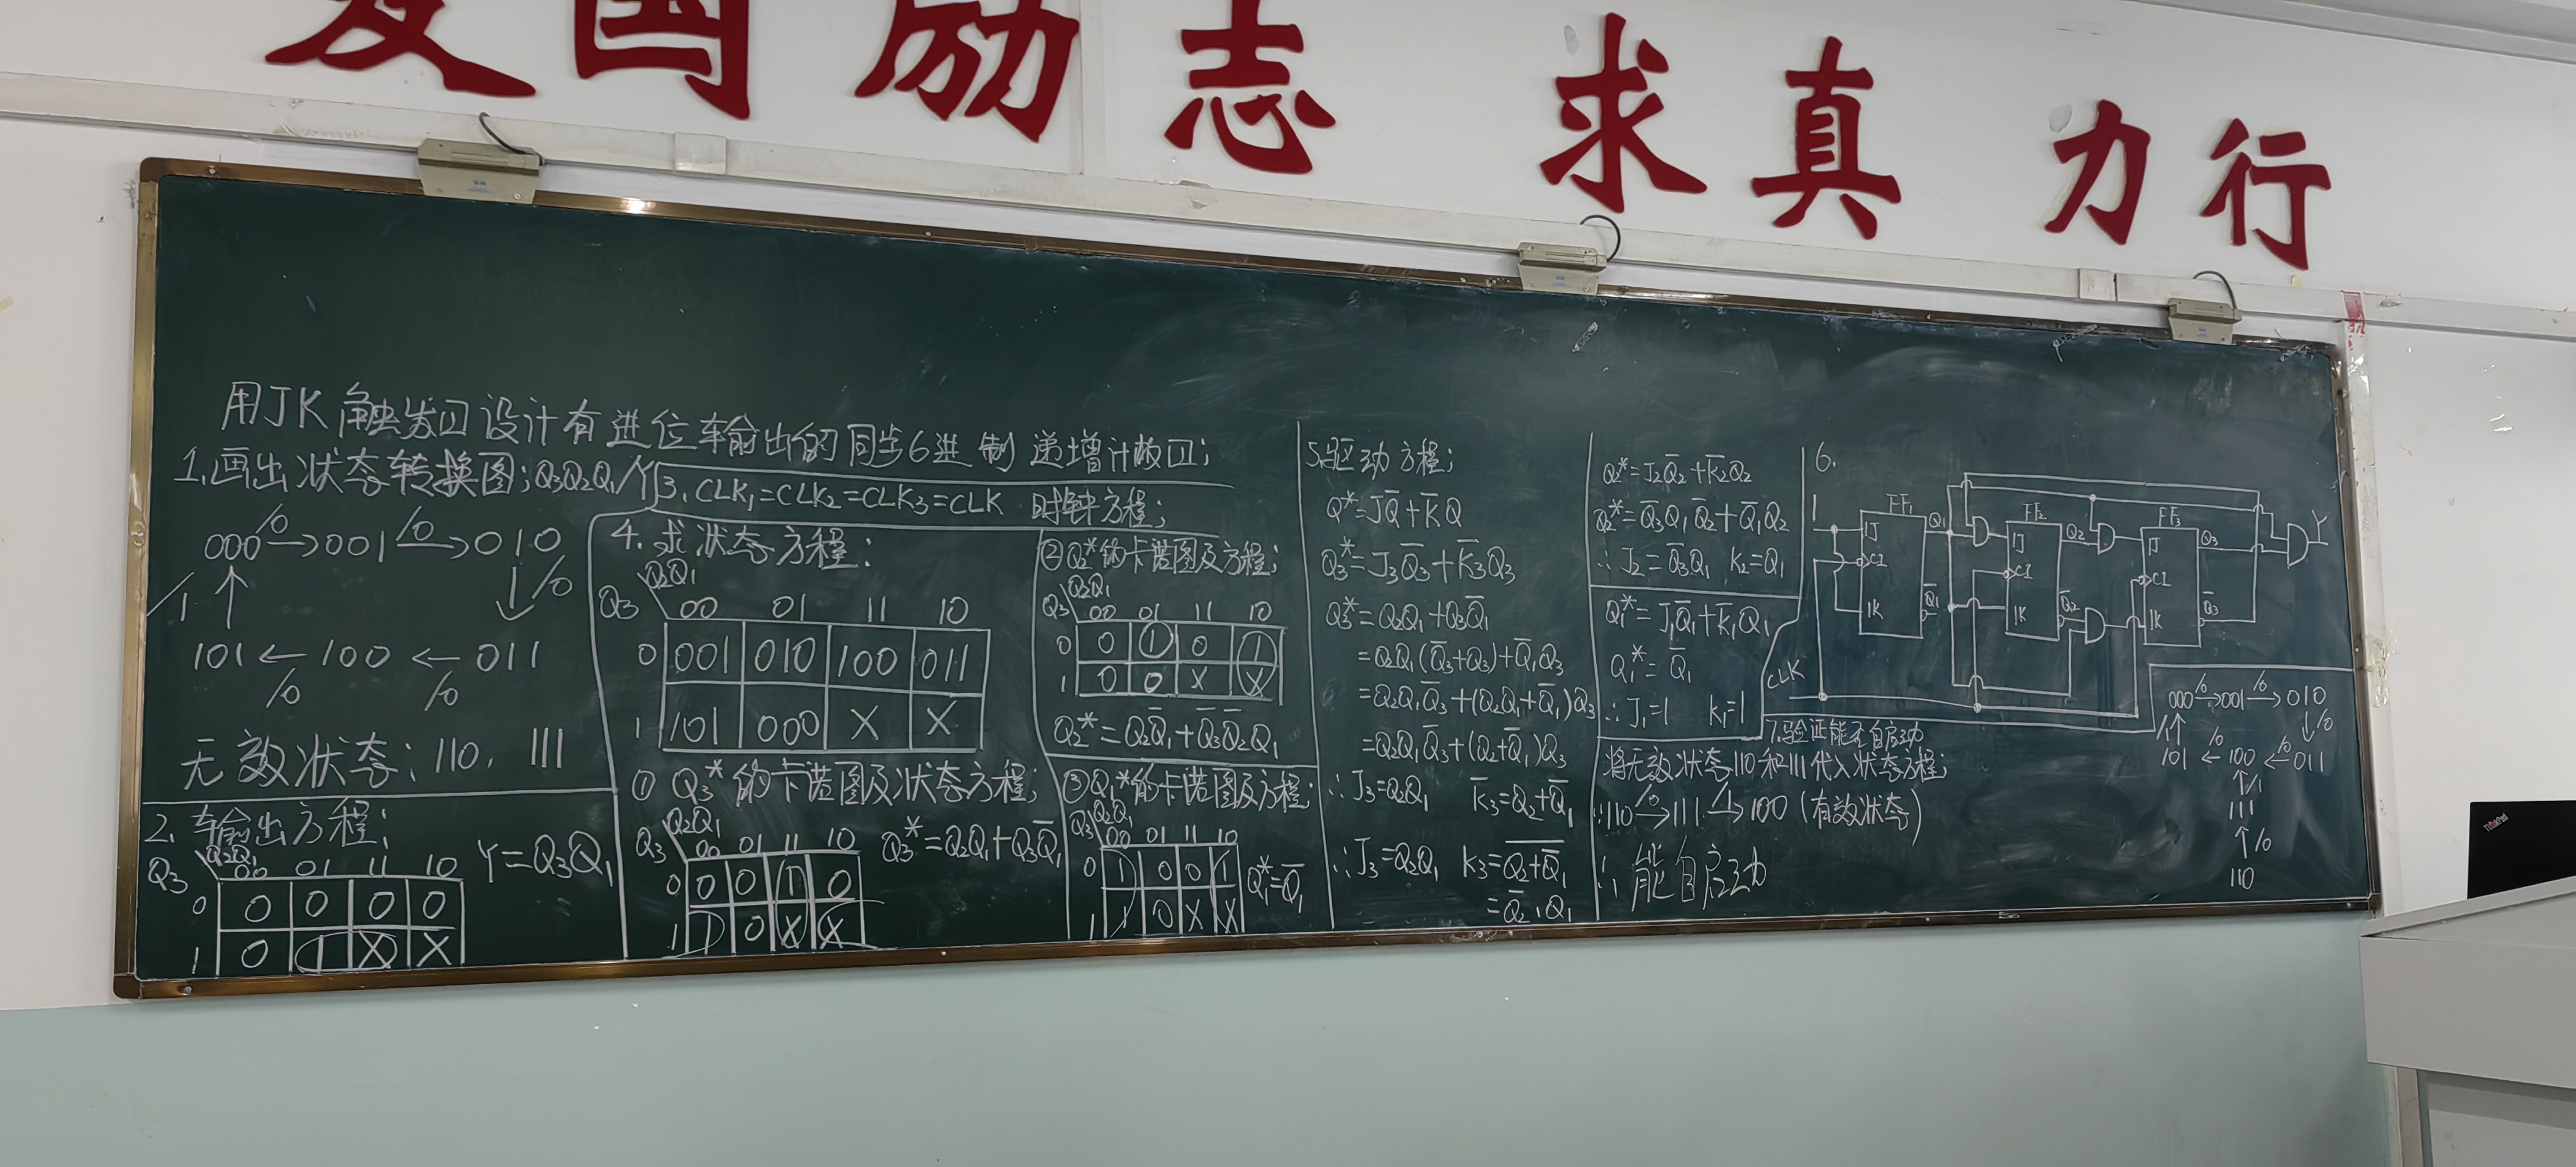 爱国励志 求真力行
用JK触发口设计有进位输出的同步6进制递增计板口;
1.画出状态转换图;Q₃Q₂Q₁/Y
000 /0→ 001 /0→ 010
/1 ↑ ↓ /0
101 ← 100 ← 011
/0 /0
无效状态:110, 111
2.输出方程:
Q₃ \ Q₂Q₁ 00 01 11 10
0 0 0 0 0
1 0 1 X X
Y=Q₃Q₁
3. CLK₁=CLK₂=CLK₃=CLK 时钟方程;
4.求状态方程:
Q₃ \ Q₂Q₁ 00 01 11 10
0 001 010 100 011
1 101 000 X X
① Q₃*的卡诺图及状态方程;
Q₃ \ Q₂Q₁ 00 01 11 10
0 0 0 1 0
1 1 0 X X
Q₃*=Q₂Q₁+Q₃Q̅₁
②Q₂*的卡诺图及方程;
Q₃ \ Q₂Q₁ 00 01 11 10
0 0 1 0 1
1 0 0 X X
Q₂*=Q₂Q̅₁+Q̅₃Q̅₂Q₁
③Q₁*的卡诺图及方程;
Q₃ \ Q₂Q₁ 00 01 11 10
0 1 0 0 1
1 1 0 X X
Q₁*=Q̅₁
5.驱动方程;
Q*=JQ̅+K̅Q
Q₃*=J₃Q̅₃+K̅₃Q₃
Q₃*=Q₂Q₁+Q₃Q̅₁
=Q₂Q₁(Q̅₃+Q₃)+Q̅₁Q₃
=Q₂Q₁Q̅₃+(Q₂Q₁+Q̅₁)Q₃
=Q₂Q₁Q̅₃+(Q₂+Q̅₁)Q₃
∴J₃=Q₂Q₁ K̅₃=Q₂+Q̅₁
∴J₃=Q₂Q₁ K₃=\overline{Q₂+Q̅₁}
=Q̅₂·Q₁
Q₂*=J₂Q̅₂+K̅₂Q₂
Q₂*=Q̅₃Q₁Q̅₂+Q̅₁Q₂
∴J₂=Q̅₃Q₁ K₂=Q₁
Q₁*=J₁Q̅₁+K̅₁Q₁
Q₁*=Q̅₁
∴J₁=1 K₁=1
6.
1 FF₁ FF₂ FF₃ Y
1J Q₁ 1J Q₂ 1J Q₃
C1 C1 C1
1K Q̅₁ 1K Q̅₂ 1K Q̅₃
CLK
7.验证能否自启动
将无效状态110和111代入状态方程;
∵110 /0→ 111 /1→ 100 (有效状态)
∴能自启动
000 /0→ 001 /0→ 010
/1 ↑ ↓ /0
101 ←/0 100 ←/0 011
↑/1
111
↑/0
110
ThinkPad